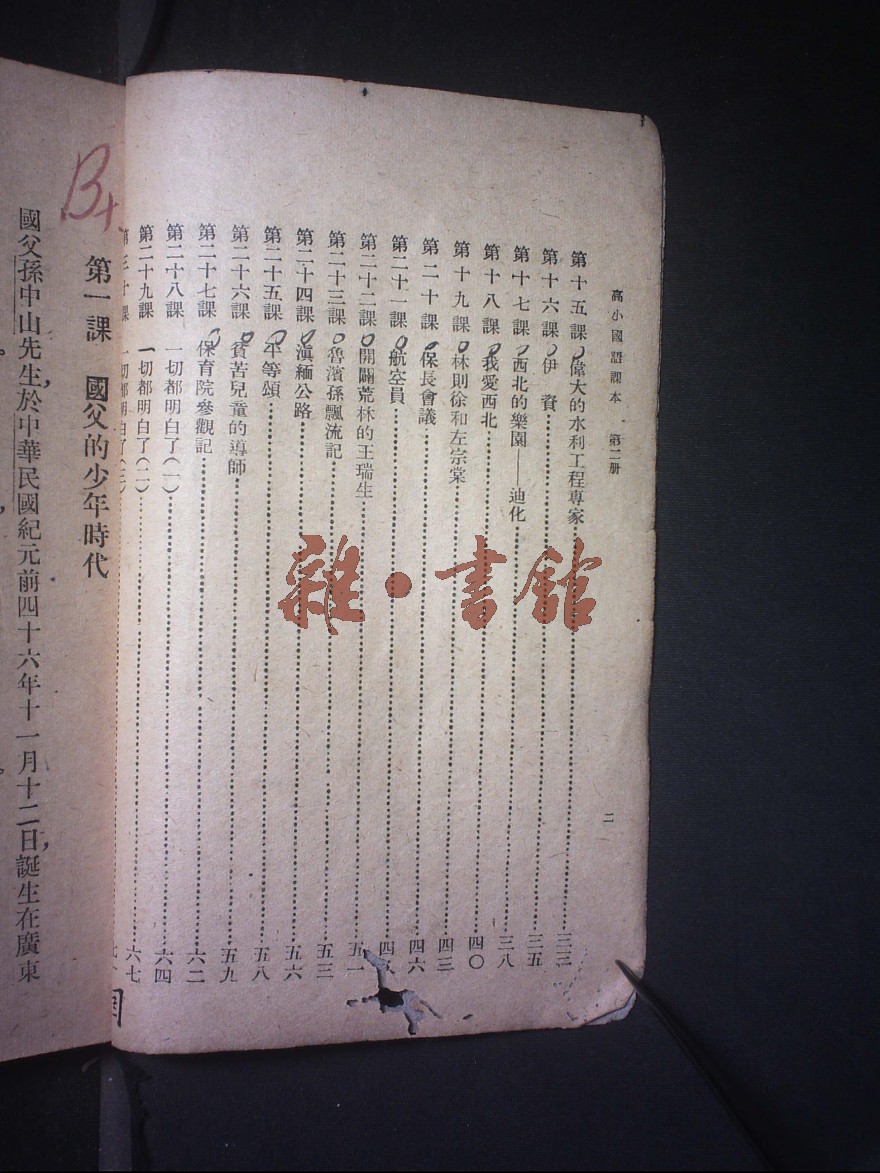 高小國語課本 第二册
二
第十五課 偉大的水利工程專家……三三
第十六課 伊 資……三五
第十七課 西北的樂園——迪化……三八
第十八課 我愛西北……四〇
第十九課 林則徐和左宗棠……四三
第二十課 保長會議……四六
第二十一課 航空員……四
第二十二課 開闢荒林的王瑞生……五一
第二十三課 魯濱孫飄流記……五三
第二十四課 滇緬公路……五六
第二十五課 平等頌……五八
第二十六課 貧苦兒童的導師……五九
第二十七課 保育院參觀記……六二
第二十八課 一切都明白了(一)……六四
第二十九課 一切都明白了(二)……六七
第三十課 一切都明白了(三)……
第一課 國父的少年時代
國父孫中山先生,於中華民國紀元前四十六年十一月十二日,誕生在廣東
B+
雜·書館